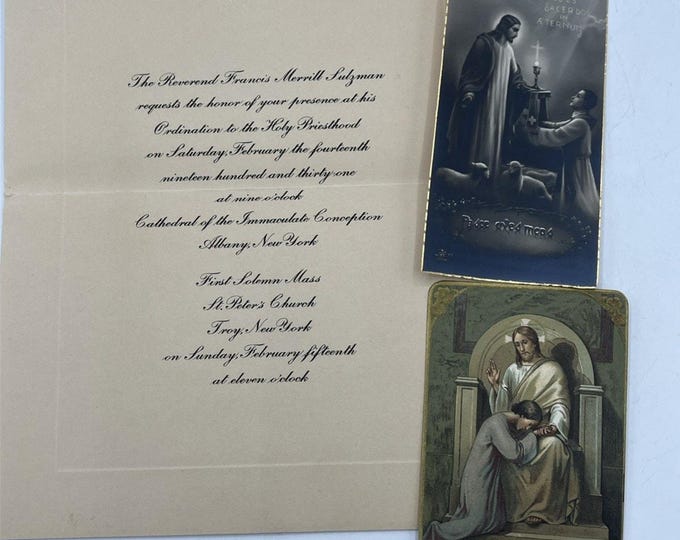 The Reverend Francis Merrill Sulzman
requests the honor of your presence at his
Ordination to the Holy Priesthood
on Saturday, February the fourteenth
nineteen hundred and thirty one
at nine o'clock
Cathedral of the Immaculate Conception
Albany, New York
First Solemn Mass
St. Peter's Church
Troy, New York
on Sunday, February fifteenth
at eleven o'clock
SACERDOS
IN
ÆTERNUM
Pasce oves meas